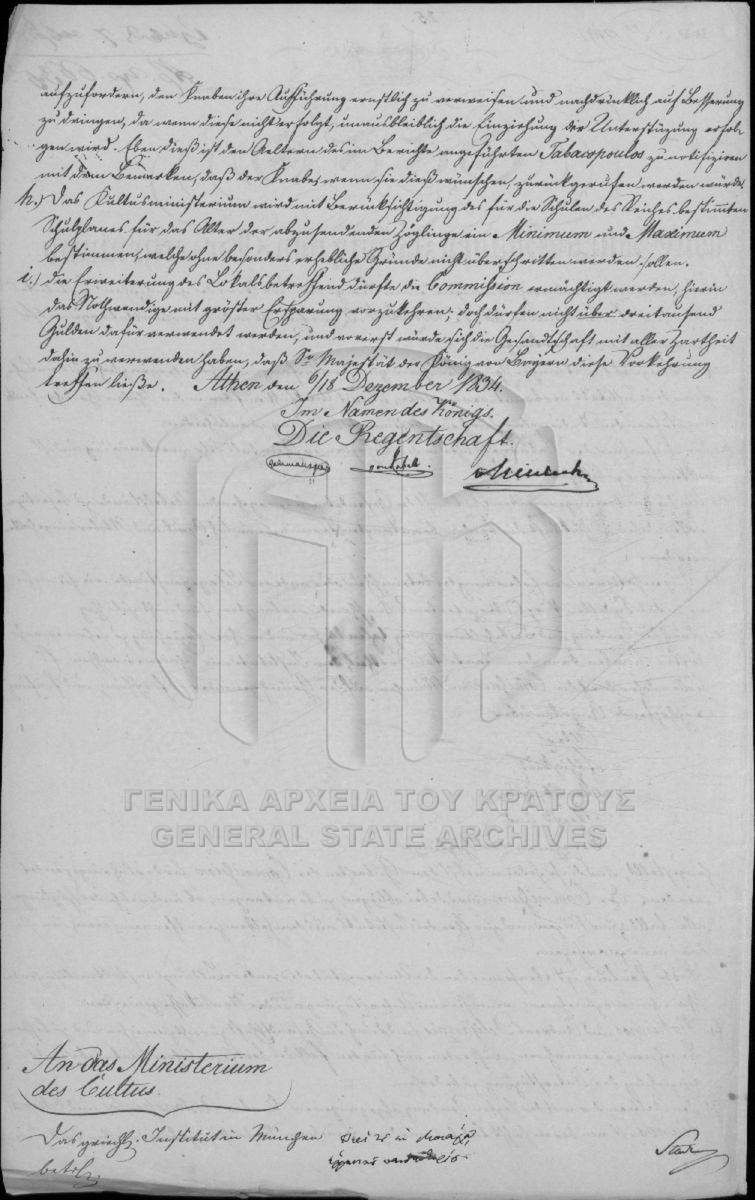 aufzufordern, den Knaben ihre Aufführung ernstlich zu verweisen und nachdrücklich auf Besserung
zu dringen, da wenn diese nicht erfolgt, unausbleiblich die Einziehung der Unterstüzung erfol-
gen wird. Eben dieß ist den Aeltern des im Berichte angeführten Tabacopoulos zu notifiziren
mit dem Bemerken, daß der Knabe, wenn sie dieß wünschen, zurückgerufen werden würde.
h.) Das Kultusministerium wird mit Berücksichtigung des für die Schulen des Reiches bestimmten
Schulplanes für das Alter der abzusendenden Zöglinge ein Minimum und Maximum
bestimmen, welche ohne besonders erhebliche Gründe nicht überschritten werden sollen.
i.) die Erweiterung des Lokals betreffend dürfte die Commission ermächtigt werden, hierin
das Nothwendige mit gröster Ersparung vorzukehren; doch dürfen nicht über dreitausend
Gulden dafür verwendet werden, und vorerst würde sich die Gesandtschaft mit aller Zartheit
dahin zu verwenden haben, daß Se. Majestät der König von Bayern diese Vorkehrung
treffen ließe. Athen den 6/18 Dezember 1834.
Im Namen des Königs.
Die Regentschaft.
ΓΕΝΙΚΑ ΑΡΧΕΙΑ ΤΟΥ ΚΡΑΤΟΥΣ
GENERAL STATE ARCHIVES
An das Ministerium
des Cultus.
Das griech. Institut in München
betr.